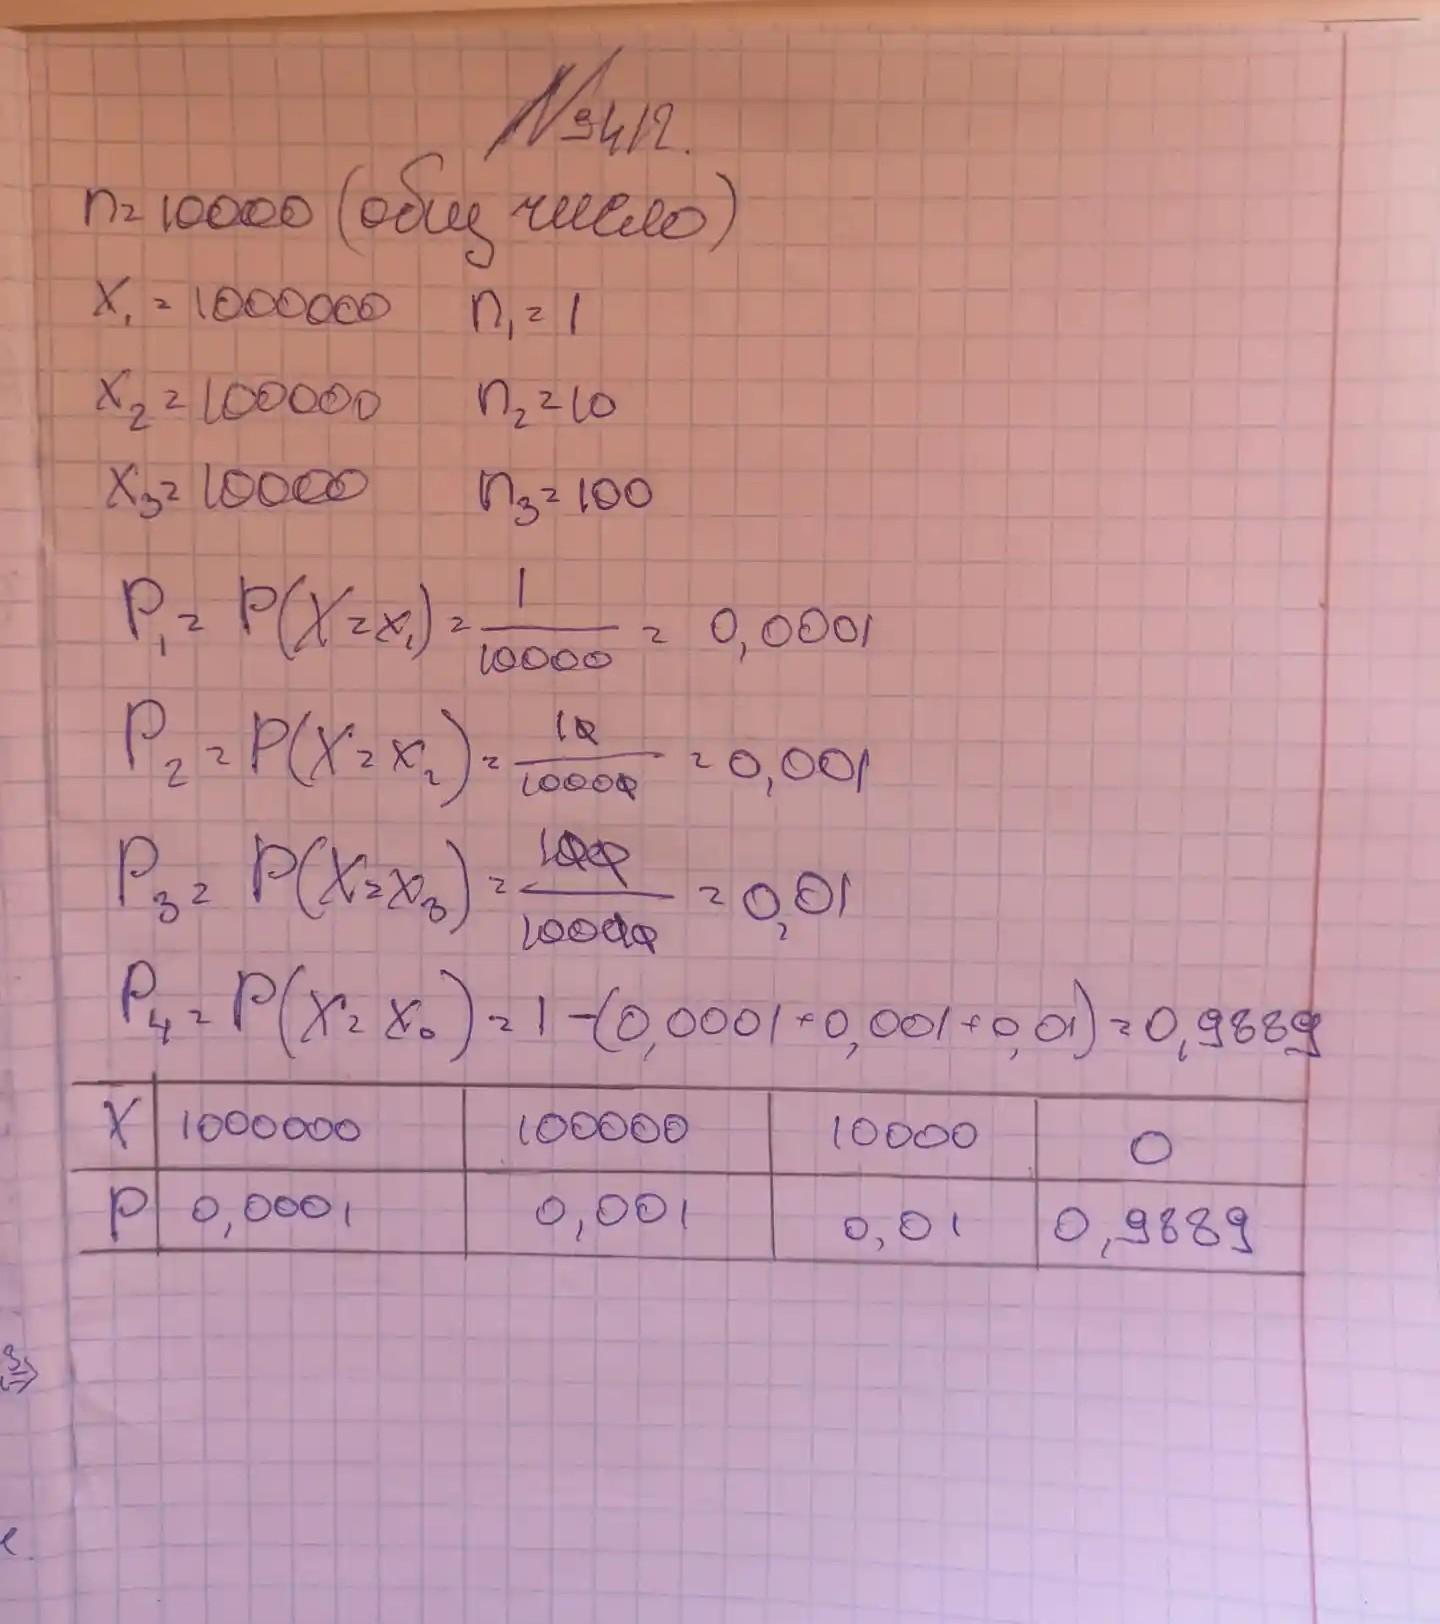 №3412.
n=10000 (общ число)
x₁=1000000 n₁=1
x₂=100000 n₂=10
x₃=10000 n₃=100
P₁= P(X=x₁)= 1/10000 = 0,0001
P₂=P(X=x₂)= 10/10000 =0,001
P₃= P(X=x₃)= 100/10000 =0,01
P₄=P(X=x₀)=1-(0,0001+0,001+0,01)=0,9889
X 1000000 100000 10000 0
P 0,0001 0,001 0,01 0,9889